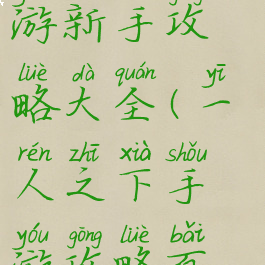 游新手攻
lüè dà quán yī
略大全(一
rén zhī xià shǒu
人之下手
yóu gōng lüè bǎi
游攻略百